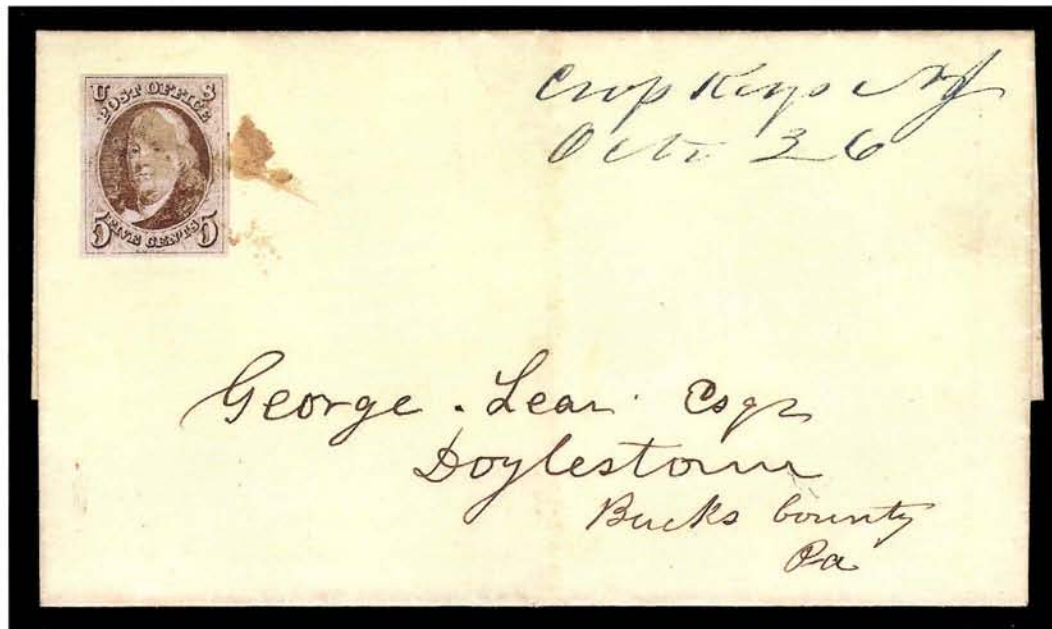 U S
POST OFFICE
5 FIVE CENTS 5
Cross Keys NJ
Octr 26
George . Lear . Esqr
Doylestown
Bucks County
Pa